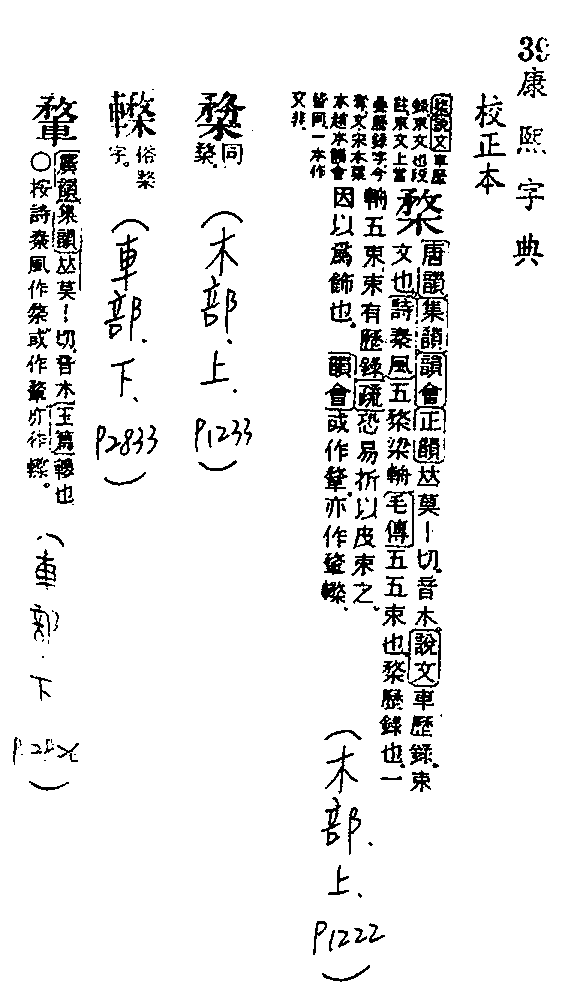 39
康熙字典
校正本
楘說文車歷
錄束文也段
註束文上當
疊歷錄字今
奪文宋本葉
本趙本韻會
皆同一本作
文非
楘
唐韻集韻韻會正韻𠀤莫卜切音木說文車歷錄束
文也詩秦風五楘梁輈毛傳五五束也楘歷錄也一
輈五束束有歷錄疏恐易折以皮束之
因以爲飾也 韻會或作鞪亦作𨍜
(木部.上.
P1222
)
同
楘
(木部.上.
P1233
)
俗楘
字
(車部.下.
P2833
)
廣韻集韻𠀤莫卜切音木玉篇轅也
○按詩秦風作楘或作鞪亦作
(車部.下
)